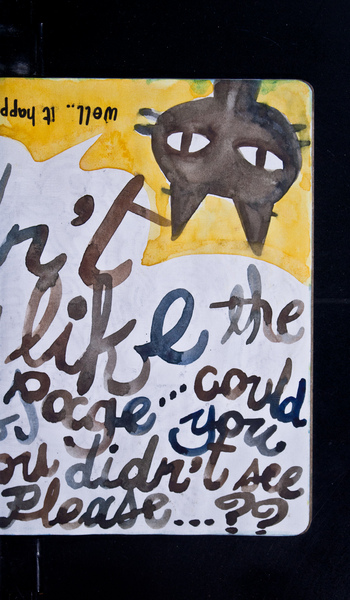 well.. it happ
n't
like the
page... could
you
ou didn't see
Please...??